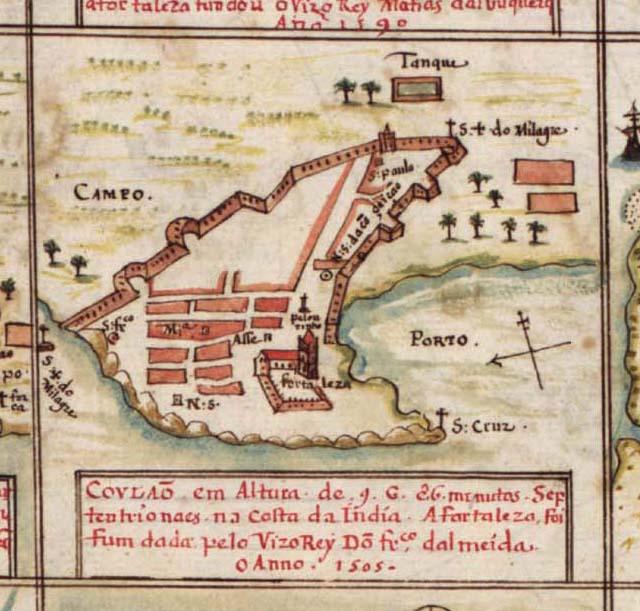 a fortaleza fundou o Vizo Rey Matias dalbuquerq
Anº 1590
Tanque
S. ✝ do Milagre.
CAMPO.
S. Paulo
S. frco
Mia
Asse
pelou
rinho
fortaleza
N. S.
PORTO.
S: Cruz.
S. ✝ do
Milagre
po.
COVLAÕ em Altura. de. 9. G. & 6. minutos. Sep
tentrionaes. na Costa da India. A fortaleza, foi
fundada pelo VizoRey Dõ frco, dalmeida.
O Anno. 1505.